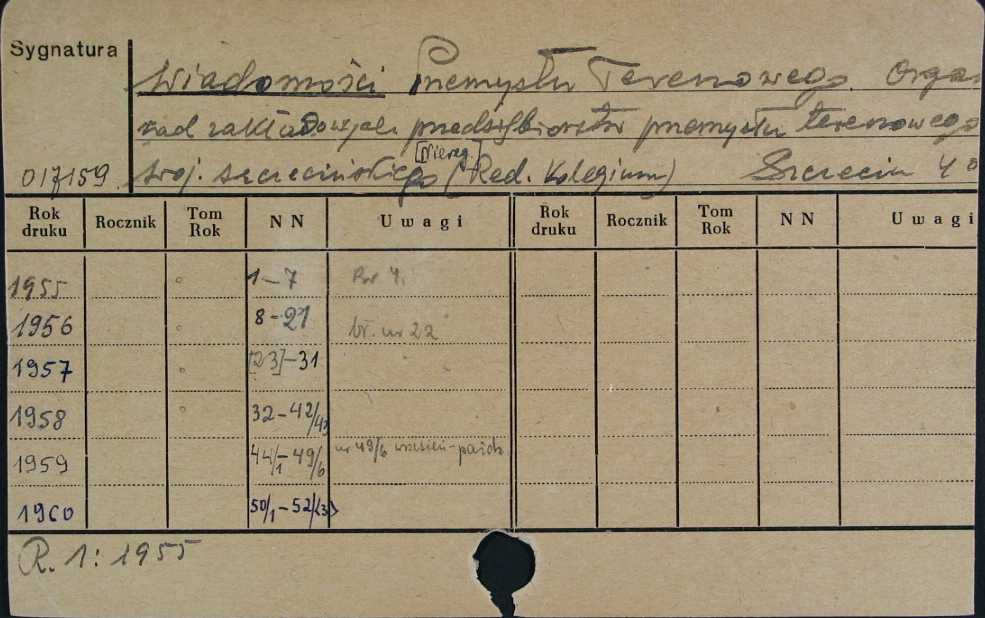 Sygnatura
Wiadomości Przemysłu Terenowego. Organ
rad zakładowych przedsiębiorstw przemysłu terenowego
[Niereg.]
017159 woj. szczecińskiego (Red. Kolegium) Szczecin 4°
Rok druku Rocznik Tom Rok NN Uwagi Rok druku Rocznik Tom Rok NN Uwagi
1955 1-7
1956 8-21 br. nr 22
1957 [23]-31
1958 32-42/43
1959 44/1-49/6 nr 49/6 wrzesień-paźdz.
1960 50/1-52/(3)
R. 1: 1955